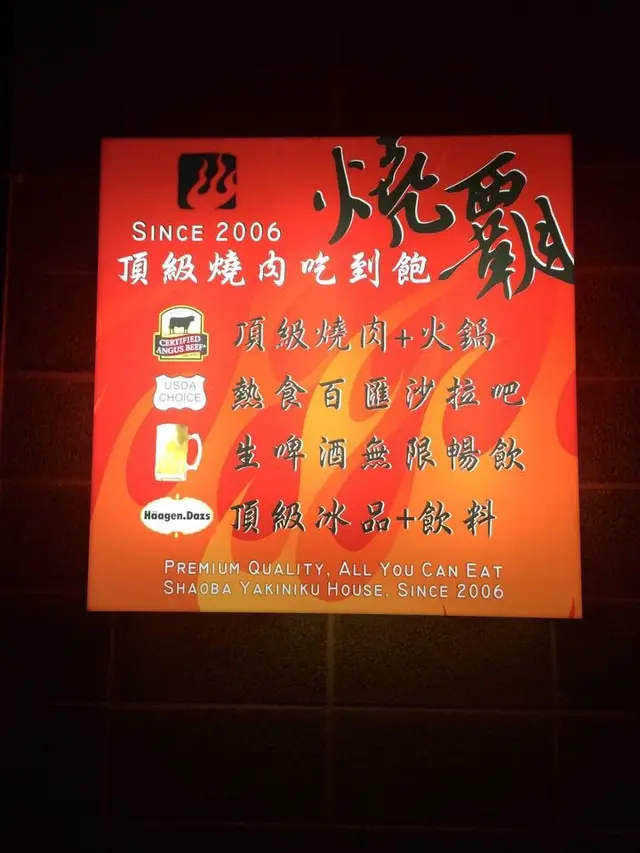 燒霸
SINCE 2006
頂級燒肉吃到飽
CERTIFIED
ANGUS BEEF
頂級燒肉+火鍋
USDA
CHOICE
熱食百匯沙拉吧
生啤酒無限暢飲
Häagen-Dazs
頂級冰品+飲料
PREMIUM QUALITY, ALL YOU CAN EAT
SHAOBA YAKINIKU HOUSE, SINCE 2006